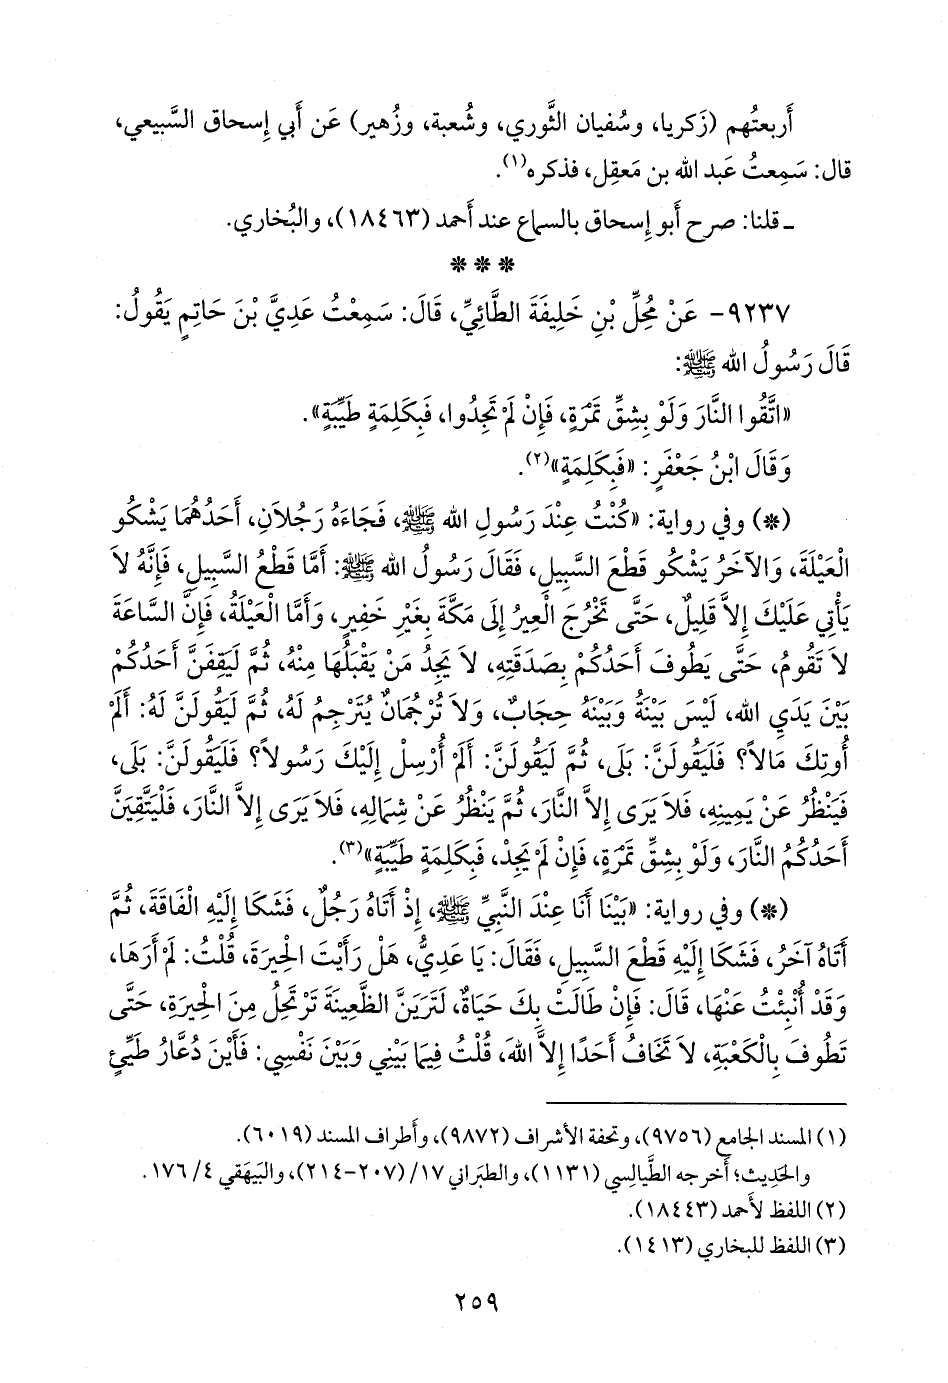 أَربعتُهم (زَكريا، وسُفيان الثَّوري، وشُعبة، وزُهير) عَن أَبي إِسحاق السَّبيعي،
قال: سَمِعتُ عَبد الله بن مَعقِل، فذكره(١).
ـ قلنا: صرح أَبو إِسحاق بالسماع عند أَحمد (١٨٤٦٣)، والبُخاري.
* * *
٩٢٣٧- عَنْ مُحِلِّ بْنِ خَلِيفَةَ الطَّائِيِّ، قَالَ: سَمِعْتُ عَدِيَّ بْنَ حَاتِمٍ يَقُولُ:
قَالَ رَسُولُ الله ﷺ:
«اتَّقُوا النَّارَ وَلَوْ بِشِقِّ تَمْرَةٍ، فَإِنْ لَمْ تَجِدُوا، فَبِكَلِمَةٍ طَيِّبَةٍ».
وَقَالَ ابْنُ جَعْفَرٍ: «فَبِكَلِمَةٍ»(٢).
(*) وفي رواية: «كُنْتُ عِنْدَ رَسُولِ الله ﷺ، فَجَاءَهُ رَجُلاَنِ، أَحَدُهُمَا يَشْكُو
الْعَيْلَةَ، وَالآخَرُ يَشْكُو قَطْعَ السَّبِيلِ، فَقَالَ رَسُولُ الله ﷺ: أَمَّا قَطْعُ السَّبِيلِ، فَإِنَّهُ لاَ
يَأْتِي عَلَيْكَ إِلاَّ قَلِيلٌ، حَتَّى تَخْرُجَ الْعِيرُ إِلَى مَكَّةَ بِغَيْرِ خَفِيرٍ، وَأَمَّا الْعَيْلَةُ، فَإِنَّ السَّاعَةَ
لاَ تَقُومُ، حَتَّى يَطُوفَ أَحَدُكُمْ بِصَدَقَتِهِ، لاَ يَجِدُ مَنْ يَقْبَلُهَا مِنْهُ، ثُمَّ لَيَقِفَنَّ أَحَدُكُمْ
بَيْنَ يَدَيِ الله، لَيْسَ بَيْنَهُ وَبَيْنَهُ حِجَابٌ، وَلاَ تُرْجُمَانٌ يُتَرْجِمُ لَهُ، ثُمَّ لَيَقُولَنَّ لَهُ: أَلَمْ
أُوتِكَ مَالاً؟ فَلَيَقُولَنَّ: بَلَى، ثُمَّ لَيَقُولَنَّ: أَلَمْ أُرْسِلْ إِلَيْكَ رَسُولاً؟ فَلَيَقُولَنَّ: بَلَى،
فَيَنْظُرُ عَنْ يَمِينِهِ، فَلاَ يَرَى إِلاَّ النَّارَ، ثُمَّ يَنْظُرُ عَنْ شِمَالِهِ، فَلاَ يَرَى إِلاَّ النَّارَ، فَلْيَتَّقِيَنَّ
أَحَدُكُمُ النَّارَ، وَلَوْ بِشِقِّ تَمْرَةٍ، فَإِنْ لَمْ يَجِدْ، فَبِكَلِمَةٍ طَيِّبَةٍ»(٣).
(*) وفي رواية: «بَيْنَا أَنَا عِنْدَ النَّبِيِّ ﷺ، إِذْ أَتَاهُ رَجُلٌ، فَشَكَا إِلَيْهِ الْفَاقَةَ، ثُمَّ
أَتَاهُ آخَرُ، فَشَكَا إِلَيْهِ قَطْعَ السَّبِيلِ، فَقَالَ: يَا عَدِيُّ، هَلْ رَأَيْتَ الْحِيرَةَ، قُلْتُ: لَمْ أَرَهَا،
وَقَدْ أُنْبِئْتُ عَنْهَا، قَالَ: فَإِنْ طَالَتْ بِكَ حَيَاةٌ، لَتَرَيَنَّ الظَّعِينَةَ تَرْتَحِلُ مِنَ الْحِيرَةِ، حَتَّى
تَطُوفَ بِالْكَعْبَةِ، لاَ تَخَافُ أَحَدًا إِلاَّ اللهَ، قُلْتُ فِيمَا بَيْنِي وَبَيْنَ نَفْسِي: فَأَيْنَ دُعَّارُ طَيِّئٍ
(١) المسند الجامع (٩٧٥٦)، وتحفة الأشراف (٩٨٧٢)، وأطراف المسند (٦٠١٩).
والحَدِيث؛ أَخرجه الطَّيالِسي (١١٣١)، والطبَراني ١٧/ (٢٠٧-٢١٤)، والبَيهَقي ٤/ ١٧٦.
(٢) اللفظ لأَحمد (١٨٤٤٣).
(٣) اللفظ للبخاري (١٤١٣).
٢٥٩